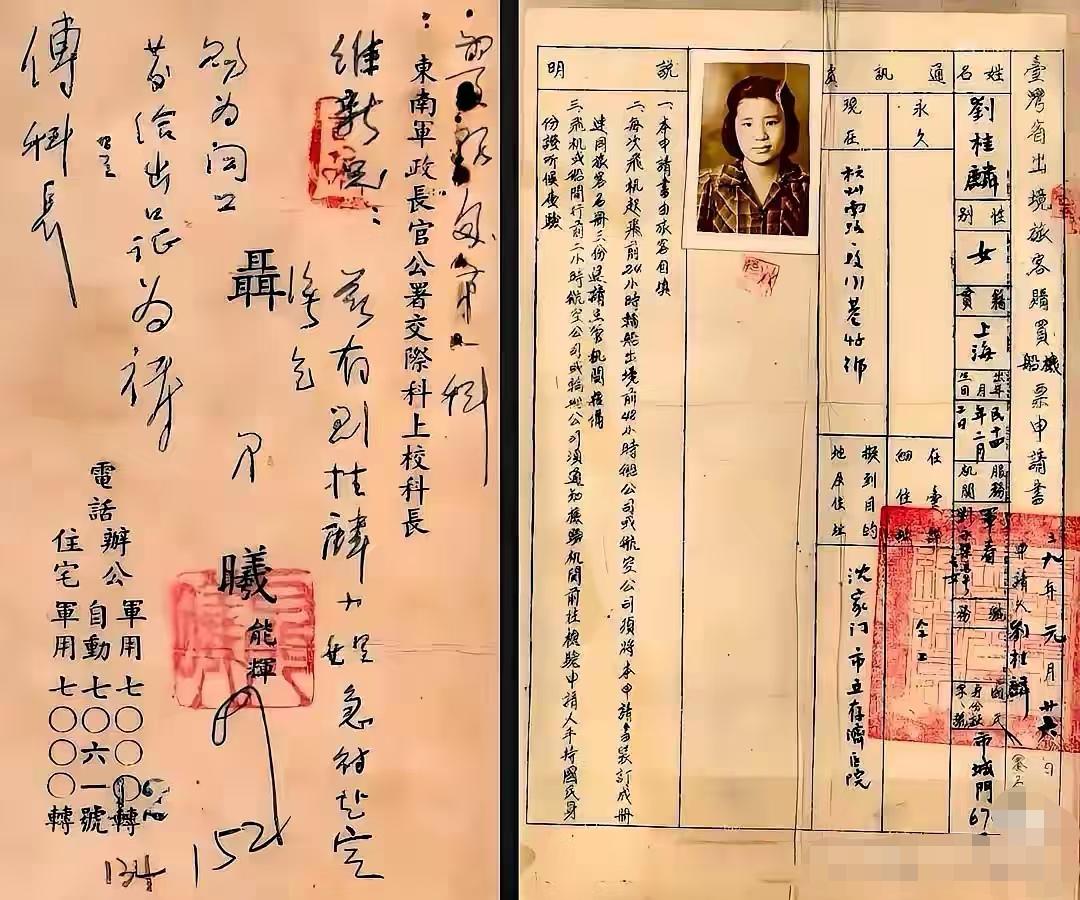 東南軍政長官公署交際科上校科長
維新兄：
茲有劉桂麟小姐急待赴定
海乞
聶曦
能輝
給出口证为禱
傅科長
電話
辦公
軍用七〇〇〇轉
自動七〇六一號
住宅軍用七〇〇〇轉
152
134
臺灣省出境旅客購買船機票申請書
申請人劉桂麟
卅九年元月廿六日
姓名
劉桂麟
性別
女
籍貫
上海
出生年月日
民十四年二月二日
服務機関
軍眷
職務
全工
國民身份証字號
市城門67
通訊處
永久
現在
杭州南路
巷45號
在臺詳細住址
擬到目的地及住址
沈家门市立存濟医院
說明
一、本申請書由旅客自填
二、每次飛机起飛前24小時輪船出境前48小時輪船公司或航空公司須將本申請書裝訂成冊
連同旅客名冊三份送請出管机関核備
三、飛机或船開行前二小時航空公司或輪船公司須通知檢驗机関前往檢驗申請人手持國民身
份證听候查驗